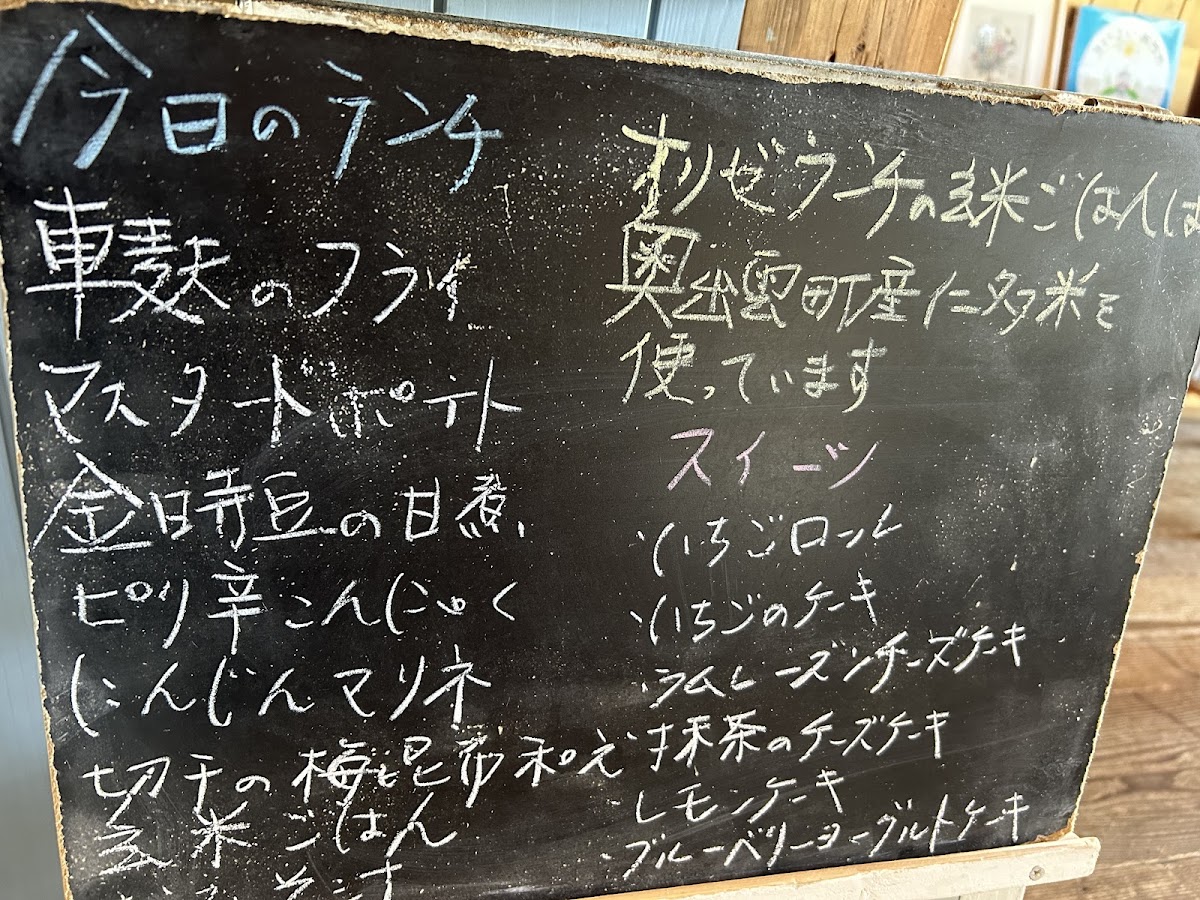 今日のランチ
車麩のフライ
マスタードポテト
金時豆の甘煮
ピリ辛こんにゃく
にんじんマリネ
切干の梅と昆布和え
玄米ごはん
みそ汁
オリゼランチの玄米ごはんは
奥出雲町産仁多米を
使っています
スイーツ
・いちごロール
・いちごのケーキ
・ラムレーズンチーズケーキ
・抹茶のチーズケーキ
・レモンケーキ
・ブルーベリーヨーグルトケーキ